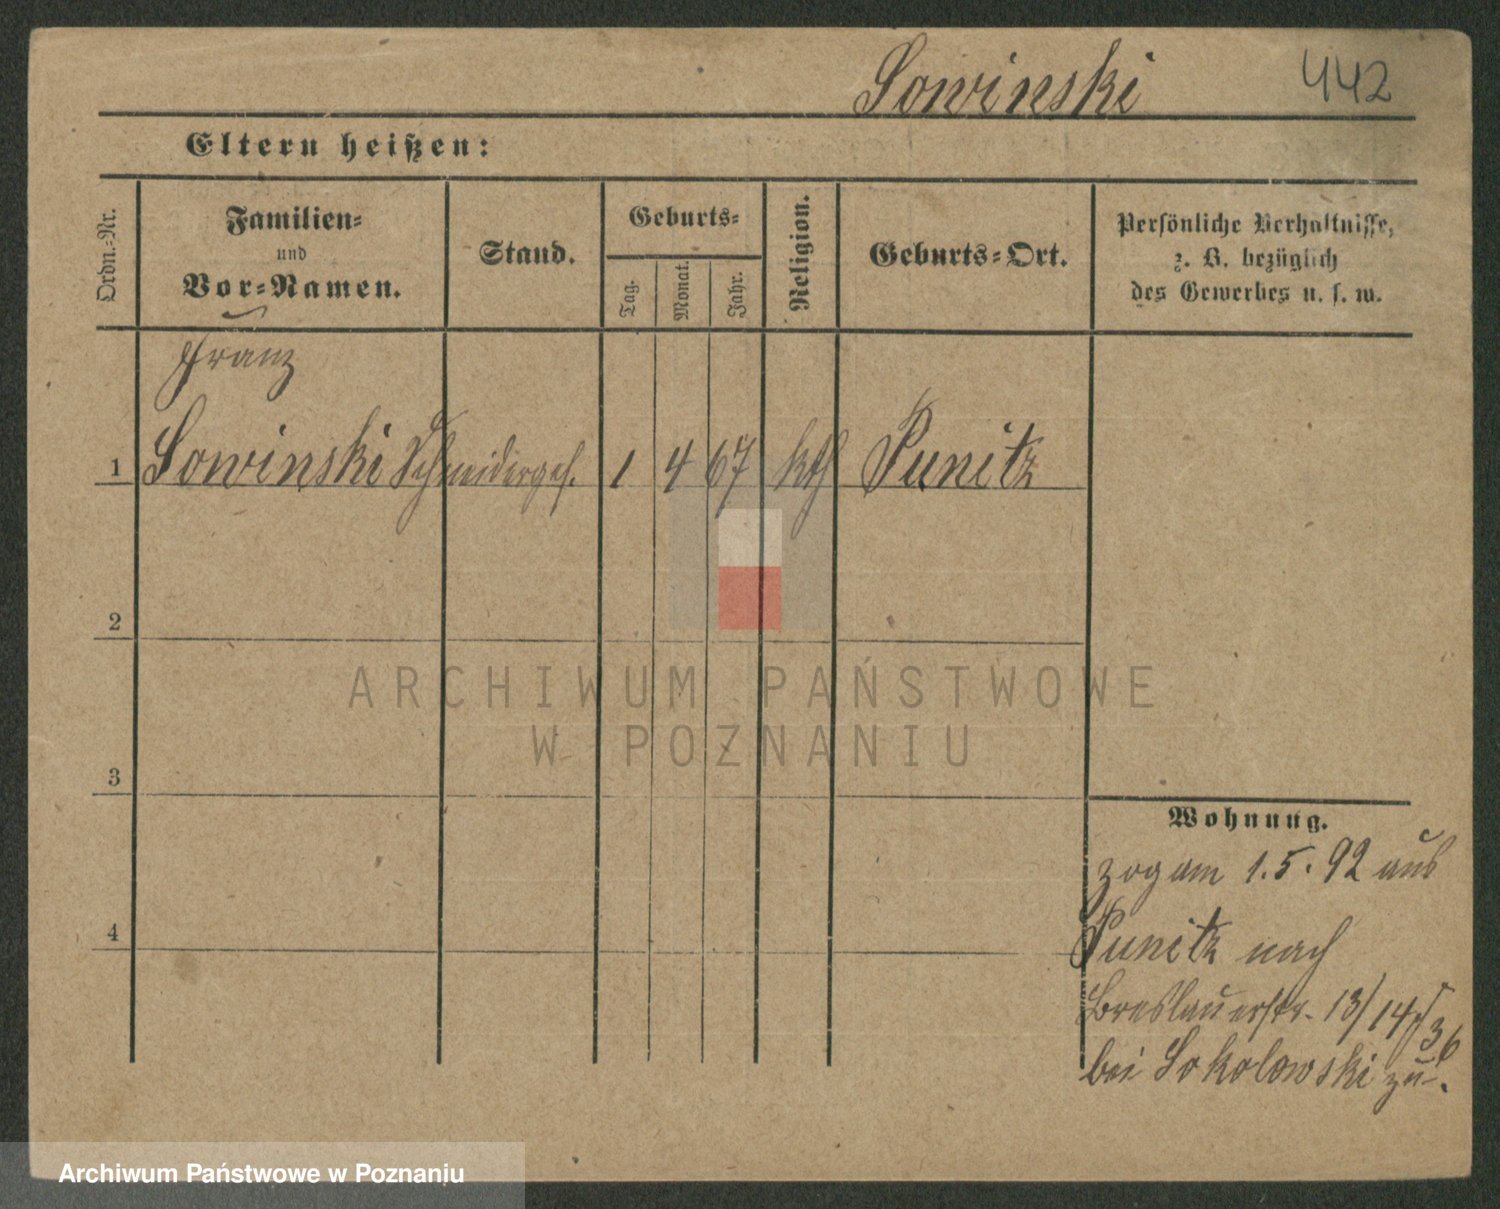 Sowinski 442
Eltern heißen:
Ordn.-Nr.
Familien-
und
Vor-Namen.
Stand.
Geburts-
Tag.
Monat.
Jahr.
Religion.
Geburts-Ort.
Persönliche Verhältnisse,
z. B. bezüglich
des Gewerbes u. s. w.
Franz
1 Sowinski Schneiderges. 1 4 67 kth Punitz
2
ARCHIWUM PAŃSTWOWE
W POZNANIU
3
Wohnung.
zog am 1.5.92 aus
4
Punitz nach
Breslauerstr. 13/14
bei Sokolowski zu.
Archiwum Państwowe w Poznaniu